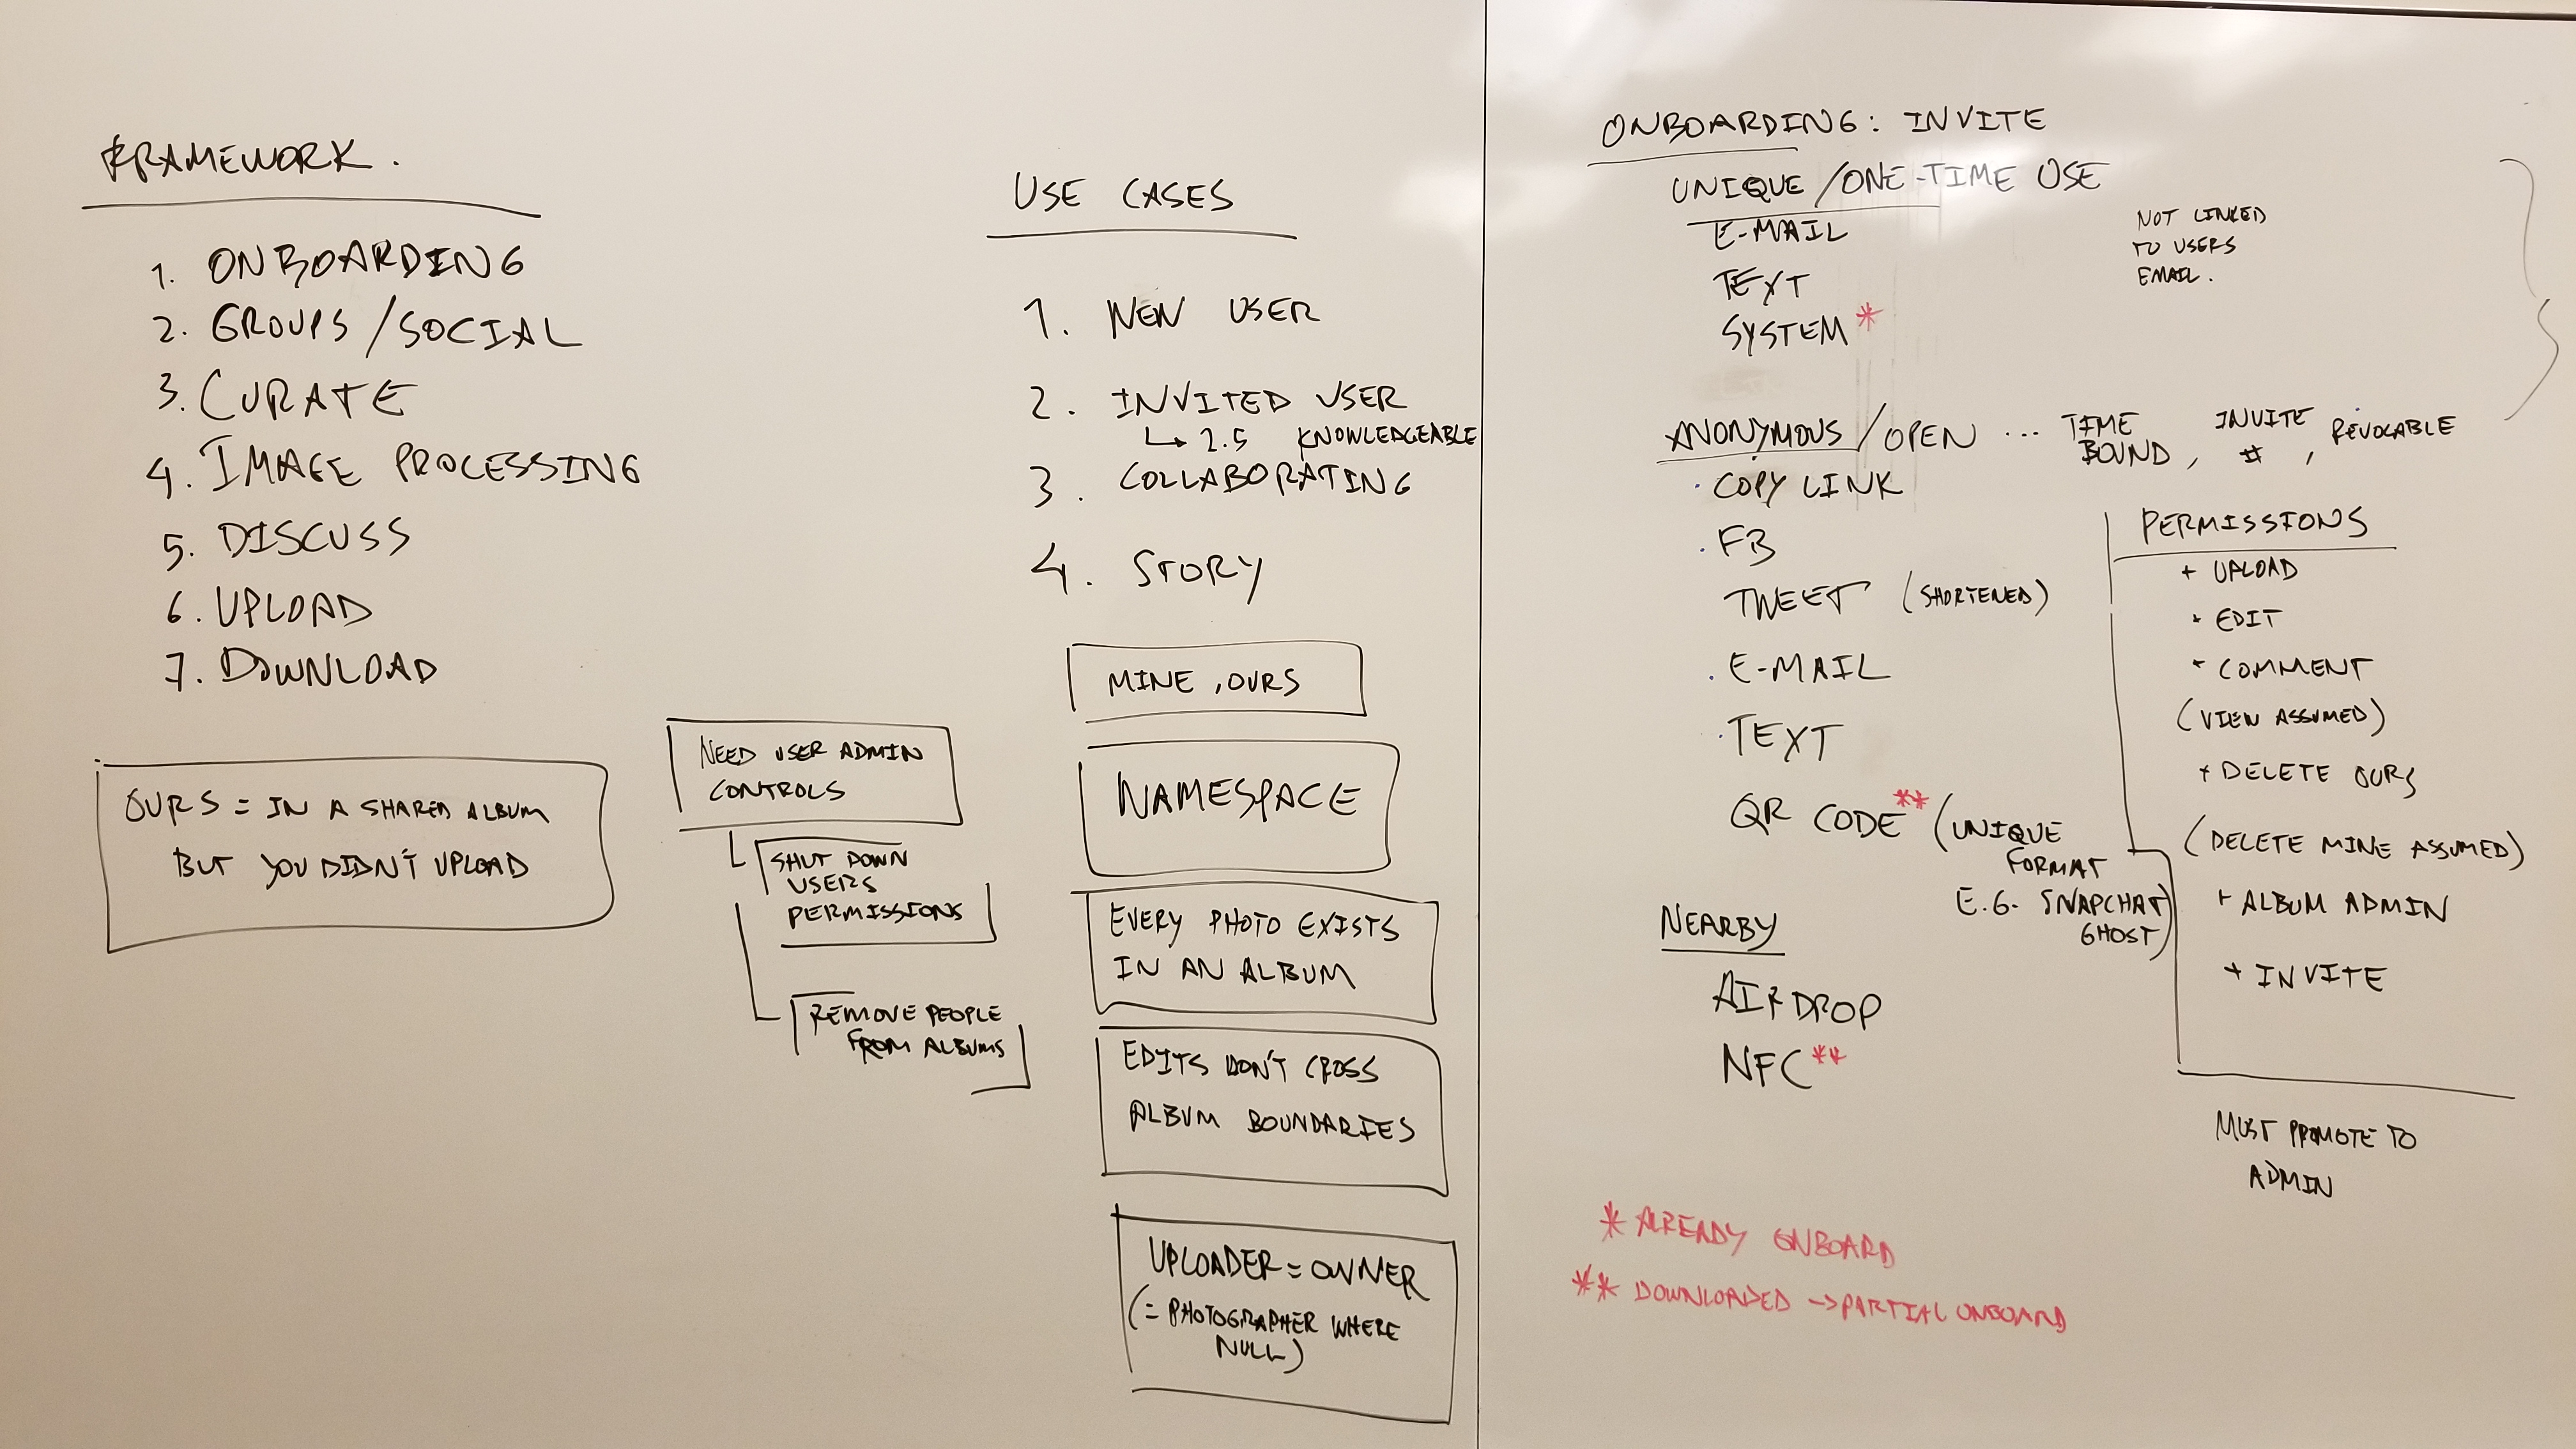 FRAMEWORK.
1. ONBOARDING
2. GROUPS/SOCIAL
3. CURATE
4. IMAGE PROCESSING
5. DISCUSS
6. UPLOAD
7. DOWNLOAD
OURS = IN A SHARED ALBUM
BUT YOU DIDN'T UPLOAD
NEED USER ADMIN
CONTROLS
SHUT DOWN
USERS
PERMISSIONS
REMOVE PEOPLE
FROM ALBUMS
USE CASES
1. NEW USER
2. INVITED USER
↳ 2.5 KNOWLEDGEABLE
3. COLLABORATING
4. STORY
MINE, OURS
NAMESPACE
EVERY PHOTO EXISTS
IN AN ALBUM
EDITS DON'T CROSS
ALBUM BOUNDARIES
UPLOADER = OWNER
(= PHOTOGRAPHER WHERE
NULL)
ONBOARDING: INVITE
UNIQUE/ONE-TIME USE
E-MAIL
TEXT
SYSTEM *
NOT LINKED
TO USERS
EMAIL.
ANONYMOUS/OPEN ... TIME BOUND, INVITE #, REVOCABLE
· COPY LINK
· FB
TWEET (SHORTENED)
· E-MAIL
· TEXT
QR CODE ** (UNIQUE
FORMAT
E.G. SNAPCHAT
GHOST)
NEARBY
AIRDROP
NFC **
PERMISSIONS
+ UPLOAD
+ EDIT
+ COMMENT
(VIEW ASSUMED)
+ DELETE OURS
(DELETE MINE ASSUMED)
+ ALBUM ADMIN
+ INVITE
MUST PROMOTE TO
ADMIN
* ALREADY ONBOARD
** DOWNLOADED -> PARTIAL ONBOARD